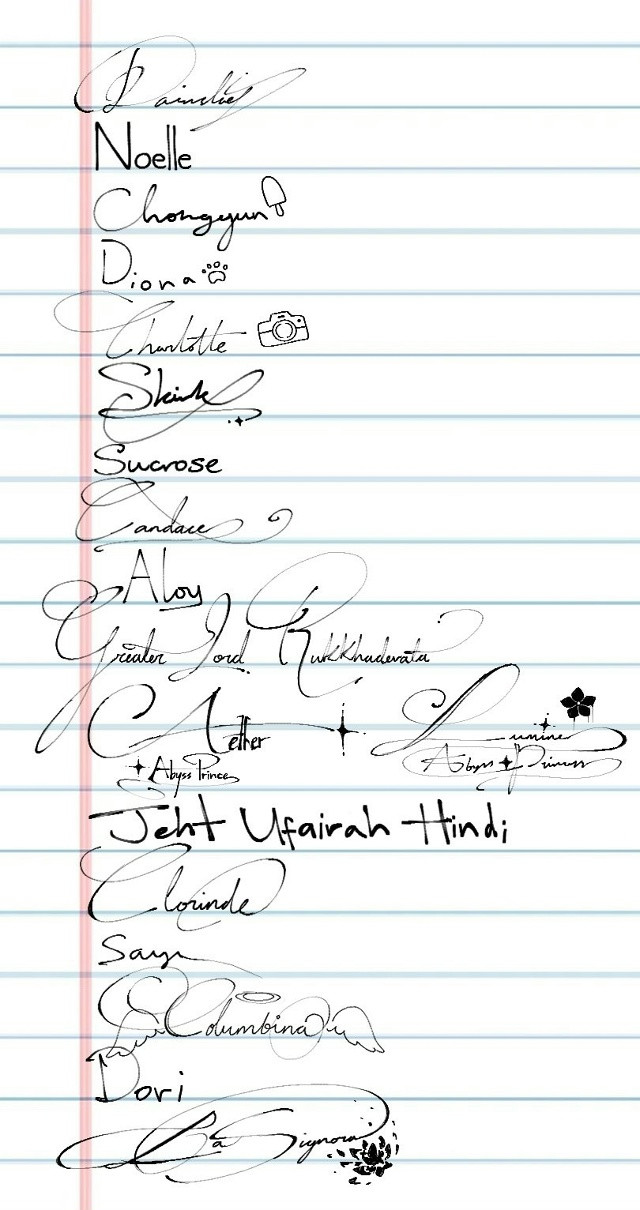 Dainsleif
Noelle
Chongyun
Diona
Charlotte
Skirk
Sucrose
Candace
Aloy
Greater Lord Rukkhadevata
Aether Lumine
Abyss Prince Abyss Princess
Jeht Ufairah Hindi
Clorinde
Sayu
Columbina
Dori
La Signora